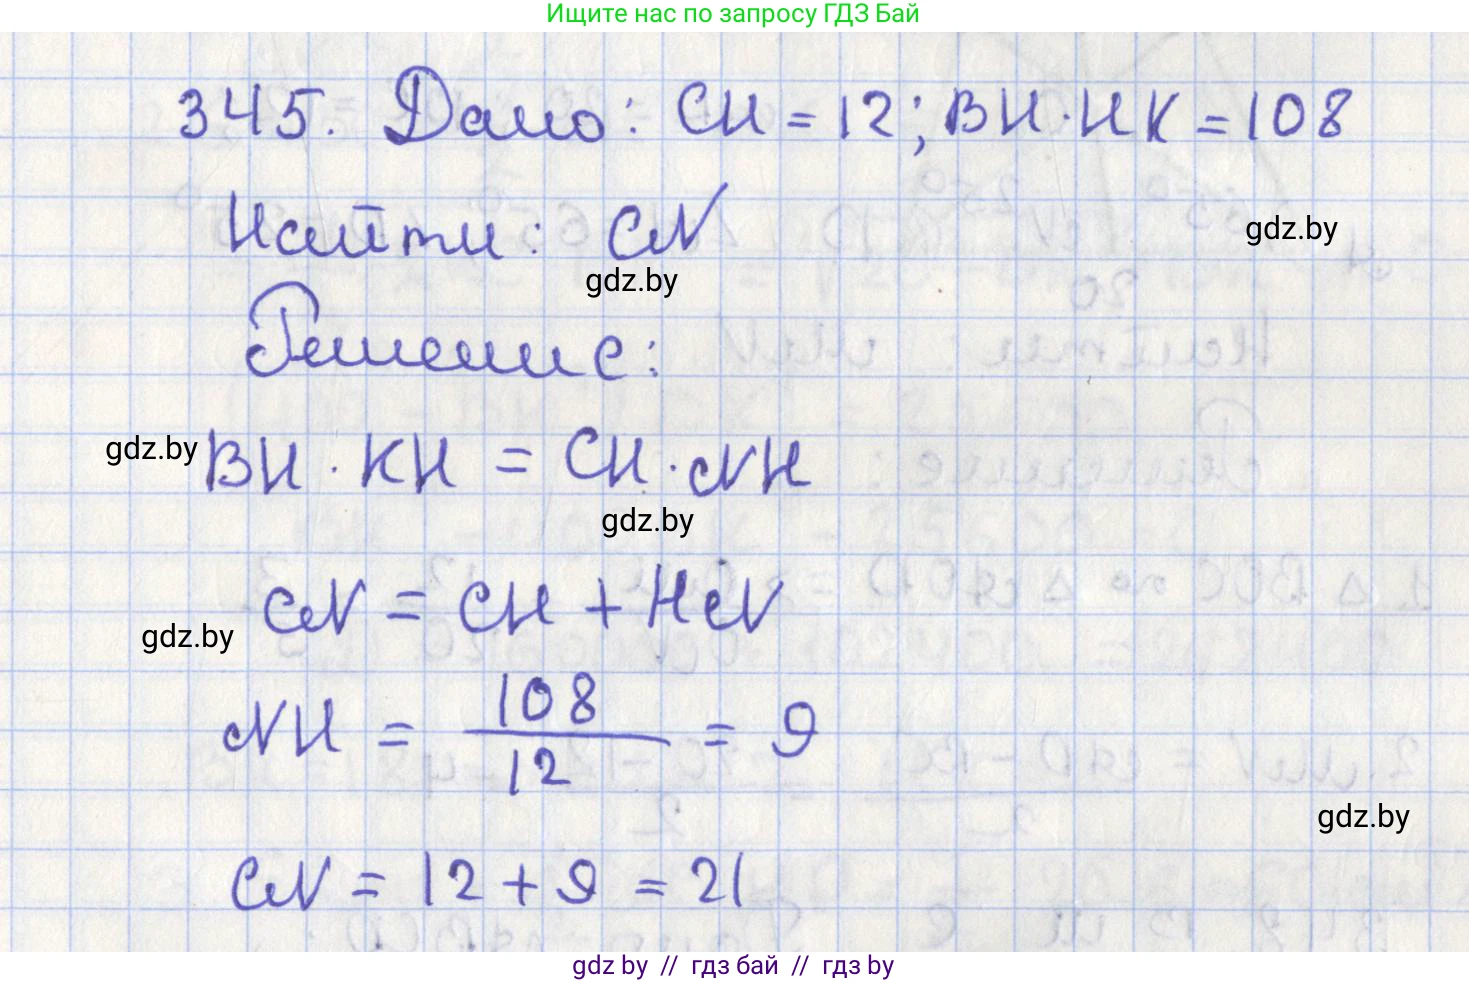 Ищите нас по запросу ГДЗ Бай
345. Дано: CH = 12; BH · HK = 108
Найти: CN
gdz.by
gdz.by
Решение:
gdz.by
BH · KH = CH · NH
gdz.by
CN = CH + HN
gdz.by
NH = 108/12 = 9
gdz.by
CN = 12 + 9 = 21
gdz by // гдз бай // гдз by